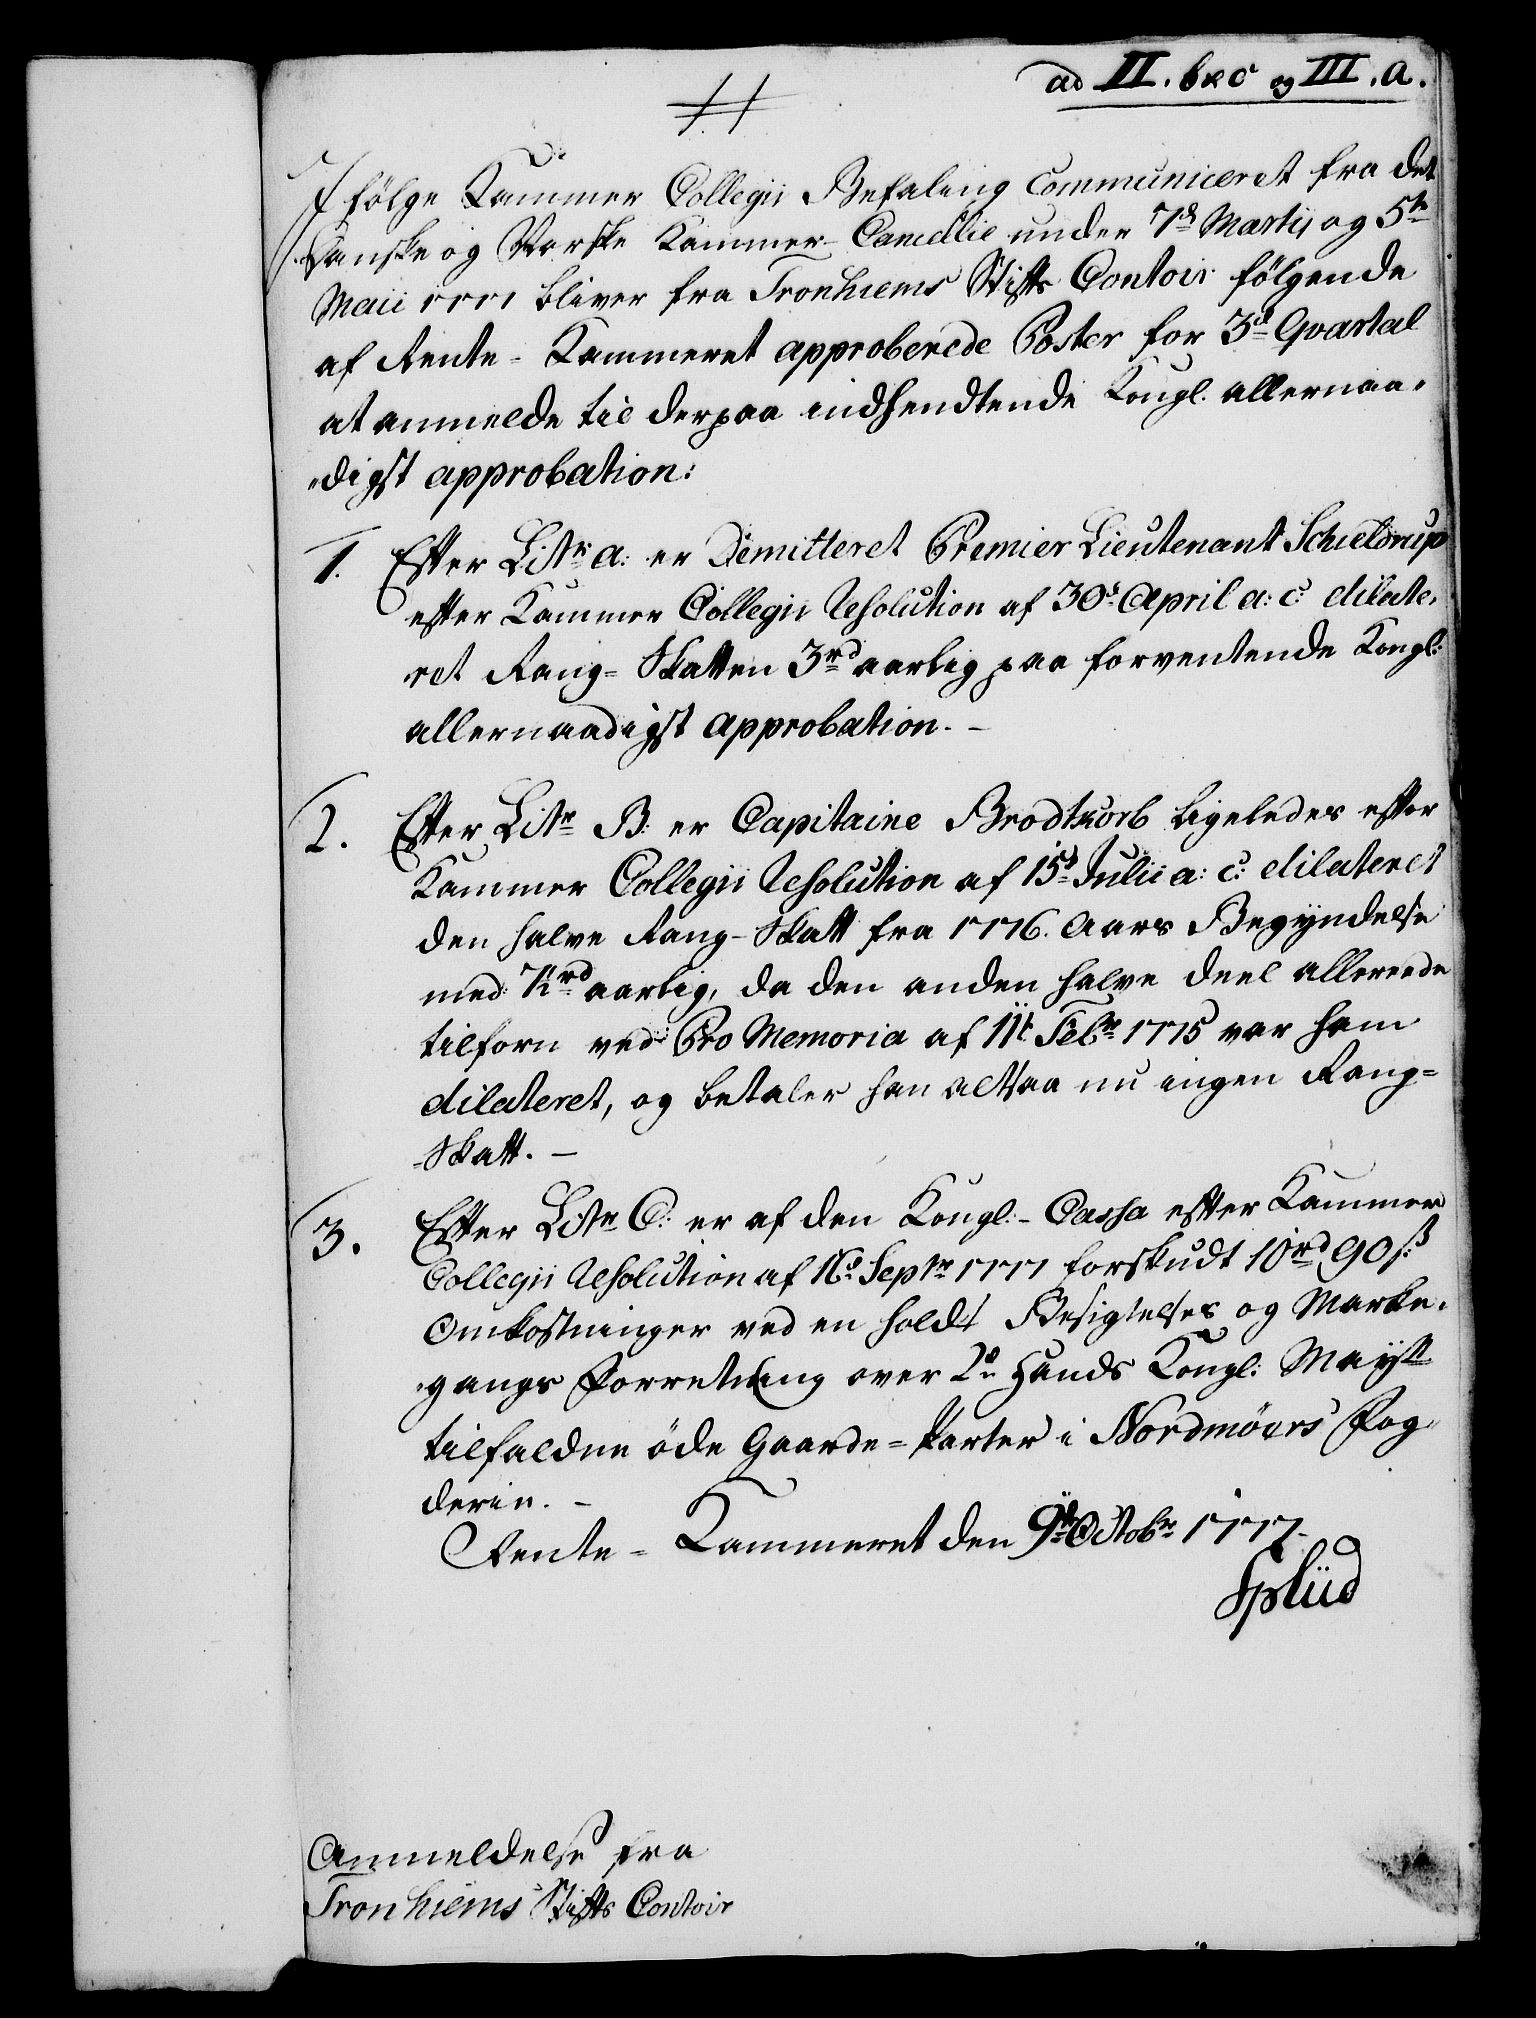 ad II. b & c og III. a.
I følge Kammer Collegii Befaling Communiceret fra det
Danske og Norske Kammer-Cancellie under 7de Martij og 5te
Maii 1777 bliver fra Tronhiems Stifts Contoir følgende
af Rente-Kammeret approberede Poster for 3de Qvartal
at anmelde til derpaa indhendtende Kongl. allernaa-
digst approbation:
1. Efter Litr a: er Demitteret Premier Lieutenant Schieldrup
efter Kammer Collegii Resolution af 30te April a: c: dilate-
ret Rang-Skatten 3rd aarlig paa forventende Kongl:
allernaadigst approbation. -
2. Efter Litr B: er Capitaine Brodtkorb ligeledes efter
Kammer Collegii Resolution af 15de Julii a: c: dilateret
den halve Rang-Skatt fra 1776. Aars Begÿndelse
med 7½rd aarlig, da den anden halve Deel allereede
tilforn ved Pro Memoria af 11te Febr 1775 var ham
dilateret, og betaler han altsaa nu ingen Rang-
Skatt. -
3. Efter Litr C: er af den Kongl:-Cassa efter Kammer
Collegii Resolution af 16de Septr 1777 forskudt 10rd 90 s:
Omkostninger ved en holdt Besigtelses og Marke-
gangs Forretning over 2de Hands Kongl: Mayst
tilfaldne öde Gaarde-Parter i Nordmöers Fog-
derie. -
Rente-Kammeret den 9de Octobr 1777.
Splüd
Anmeldelse fra
Tronhiems Stifts Contoir